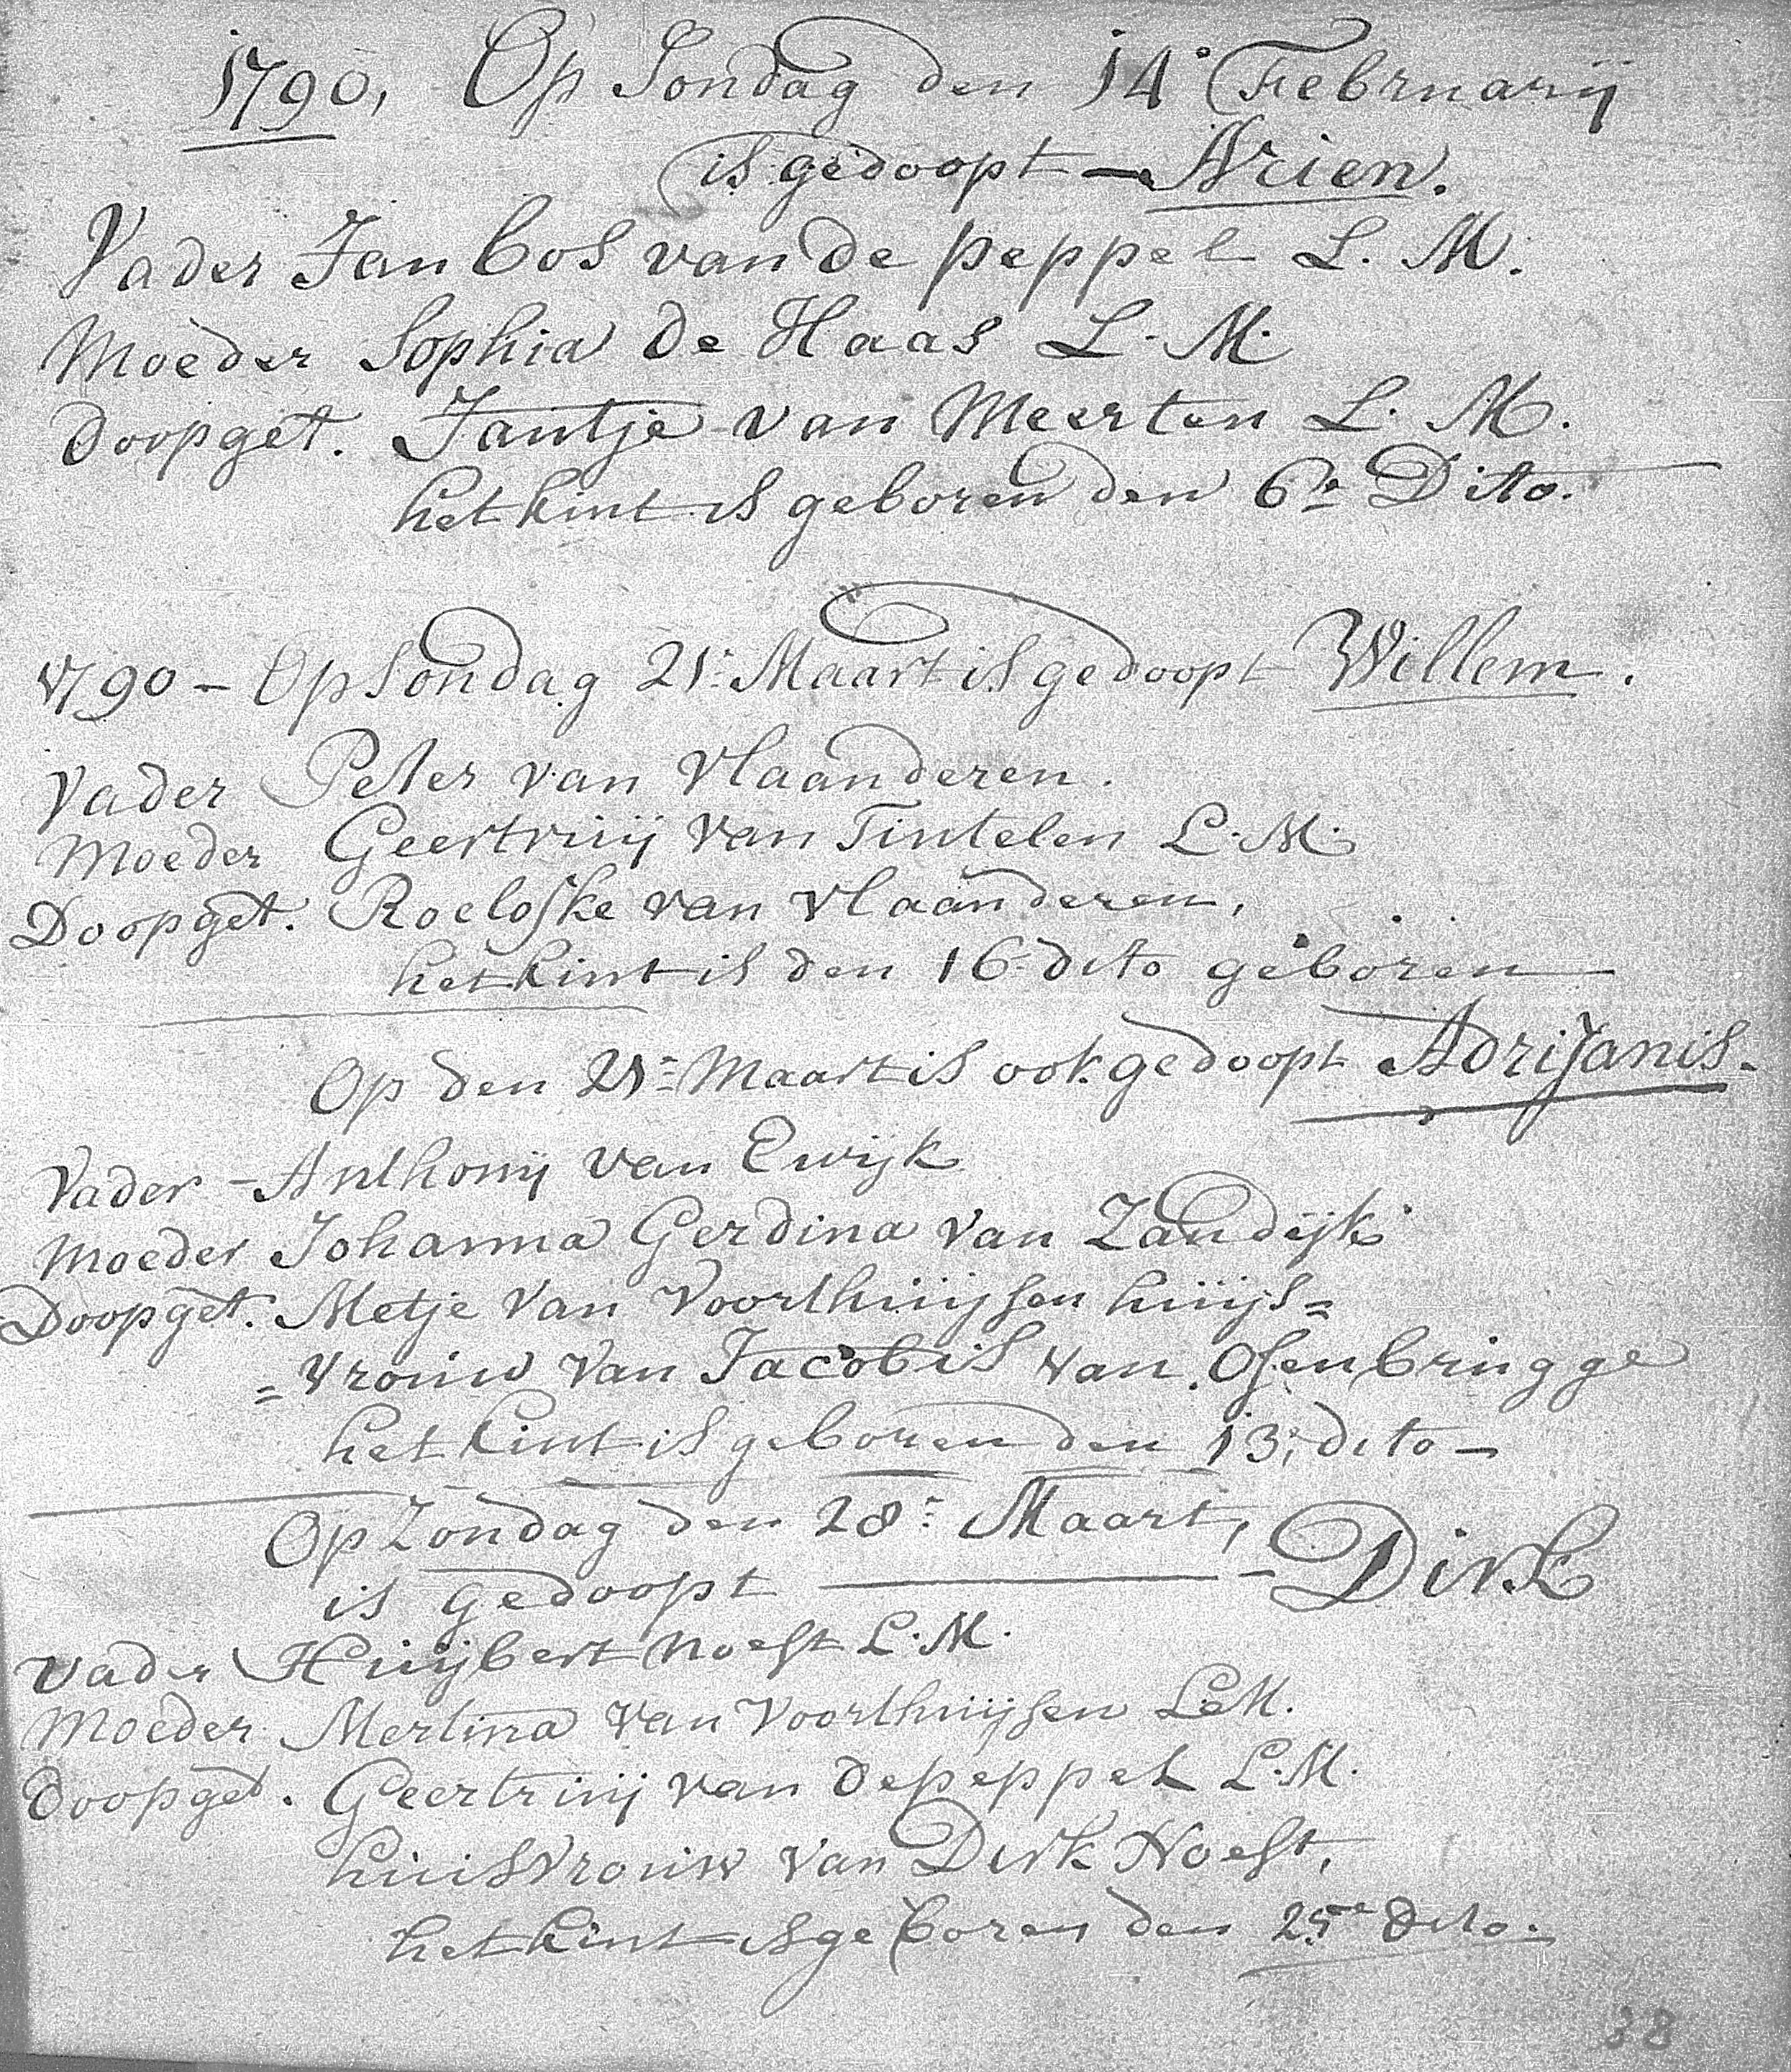 1790, Op Sondag den 14e Februarij
is gedoopt — Arien.
Vader Jan bos van de peppel L. M.
Moeder Sophia de Haas L. M.
doopget. Jantje van Meerten L. M.
het kint is geboren den 6e Dito.
1790 — Op Sondag 21e Maart is gedoopt Willem.
Vader Peter van Vlaanderen.
Moeder Geertruij van Tintelen L. M.
Doopget. Roelofke van Vlaanderen,
het kint is den 16e dito geboren
Op den 21e Maart is ook gedoopt Adrijanis.
Vader — Anthonij van Ewijk
Moeder Johanna Gerdina van Zandijk
Doopget. Metje van Voorthuijsen huijs=
=vrouw van Jacobis van Osenbrugge
het kint is geboren den 13e dito —
Op Zondag den 28e Maart,
is gedoopt — Dirk
Vader Huijbert Noest L. M.
Moeder Mertina van Voorthuijsen L. M.
doopget. Geertruij van depeppel L. M.
huisvrouw van Dirk Noest,
het kint is geboren den 25e dito.
38